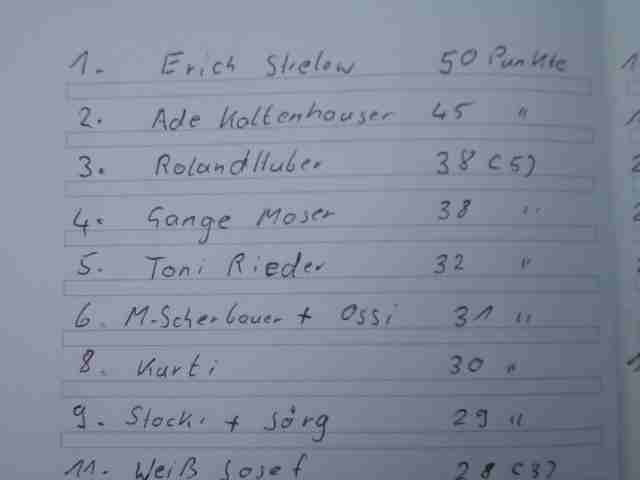 1. Erich Strelow 50 Punkte
2. Ade Kaltenhauser 45 "
3. Roland Huber 38 (5)
4. Gange Moser 38 "
5. Toni Rieder 32 "
6. M-Scherbauer + Ossi 31 "
8. Kurti 30 "
9. Stocki + Jörg 29 "
11. Weiß Josef 28 (3)